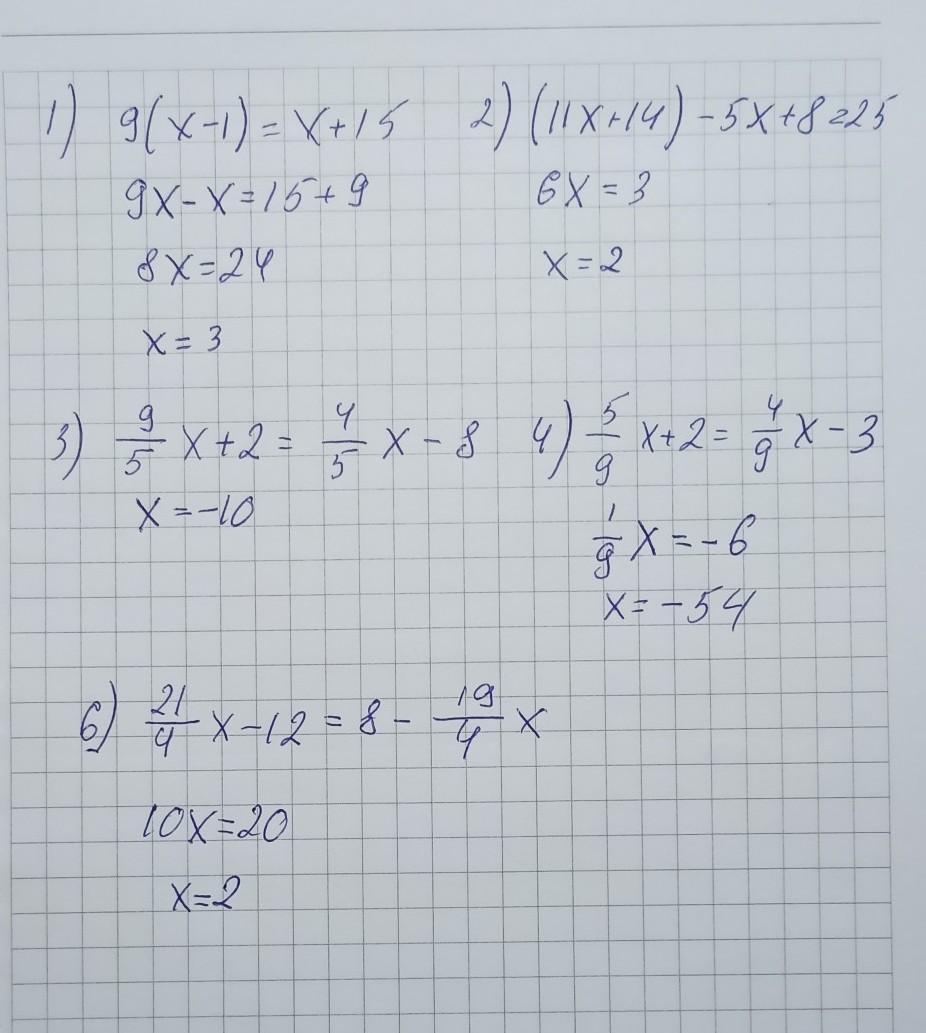 1) 9(x-1) = x+15
9x-x=15+9
8x=24
x=3
2) (11x+14)-5x+8=25
6x=3
x=2
3) 9/5 x+2= 4/5 x-8
x=-10
4) 5/9 x+2= 4/9 x-3
1/9 x=-6
x=-54
6) 21/4 x-12=8- 19/4 x
10x=20
x=2